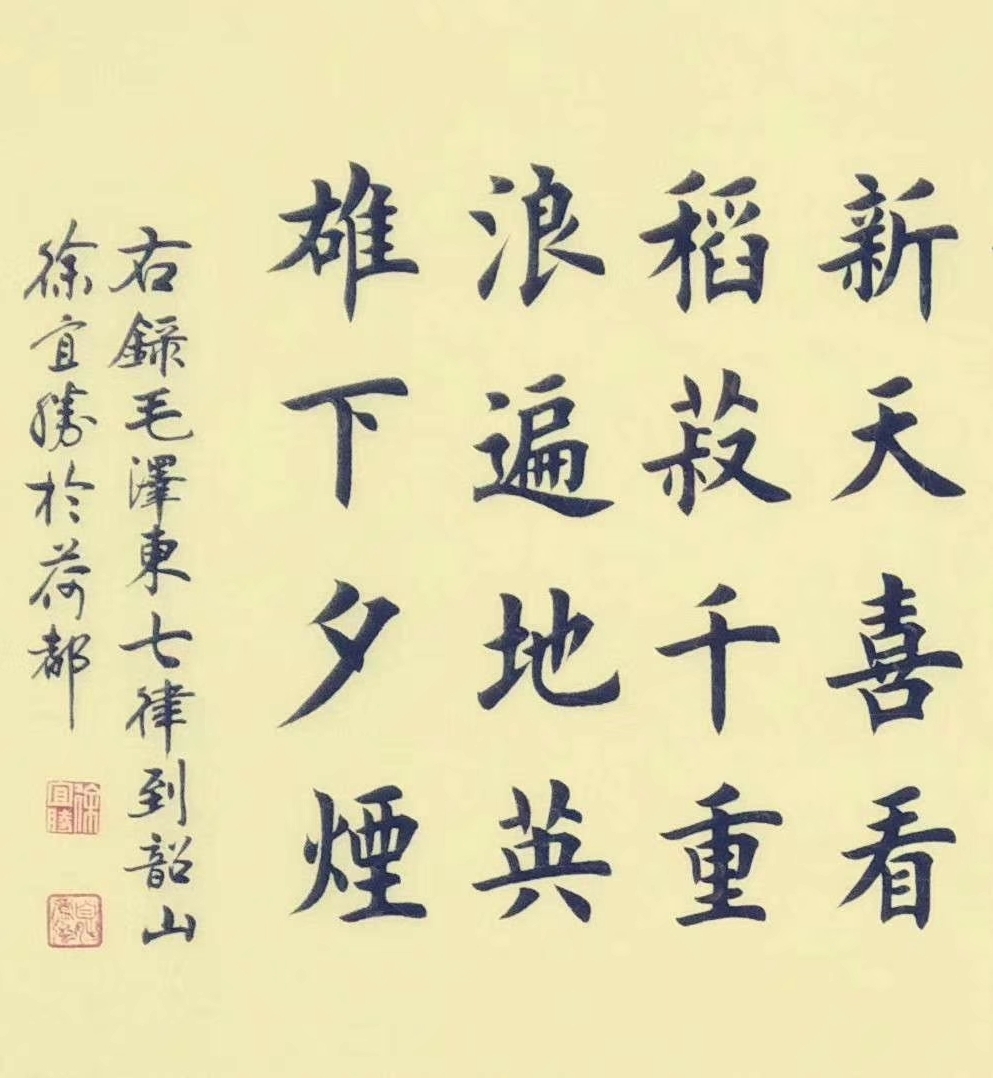 新天喜看
稻菽千重
浪遍地英
雄下夕煙
右録毛澤東七律到韶山
徐宜勝於荷都
徐宜勝